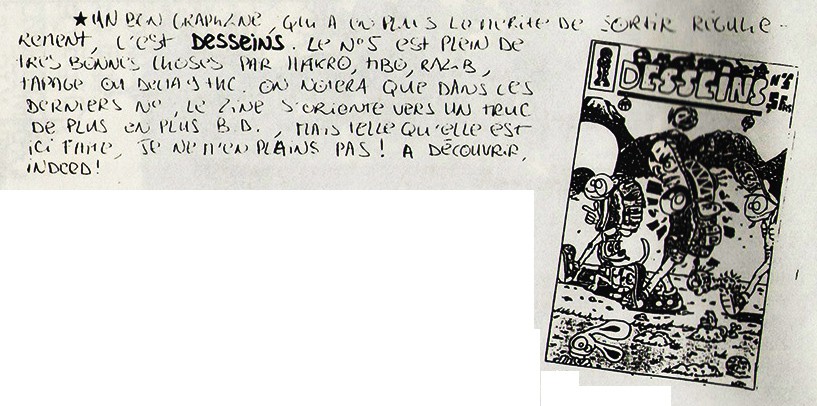 ★ UN BON GRAPHZINE, QUI A EN PLUS LE MERITE DE SORTIR RÉGULIÈ-
REMENT, C'EST DESSEINS. LE N°5 EST PLEIN DE
TRÈS BONNES CHOSES PAR MAKRO, TIBO,
TAPAGE OU DELTA 9 THC. ON NOTERA QUE DANS CES
DERNIERS N°, LE ZINE S'ORIENTE VERS UN TRUC
DE PLUS EN PLUS B.D., MAIS TELLE QU'ELLE EST
ICI FAITE, JE NE M'EN PLAINS PAS! A DÉCOUVRIR,
INDEED!
DESSEINS